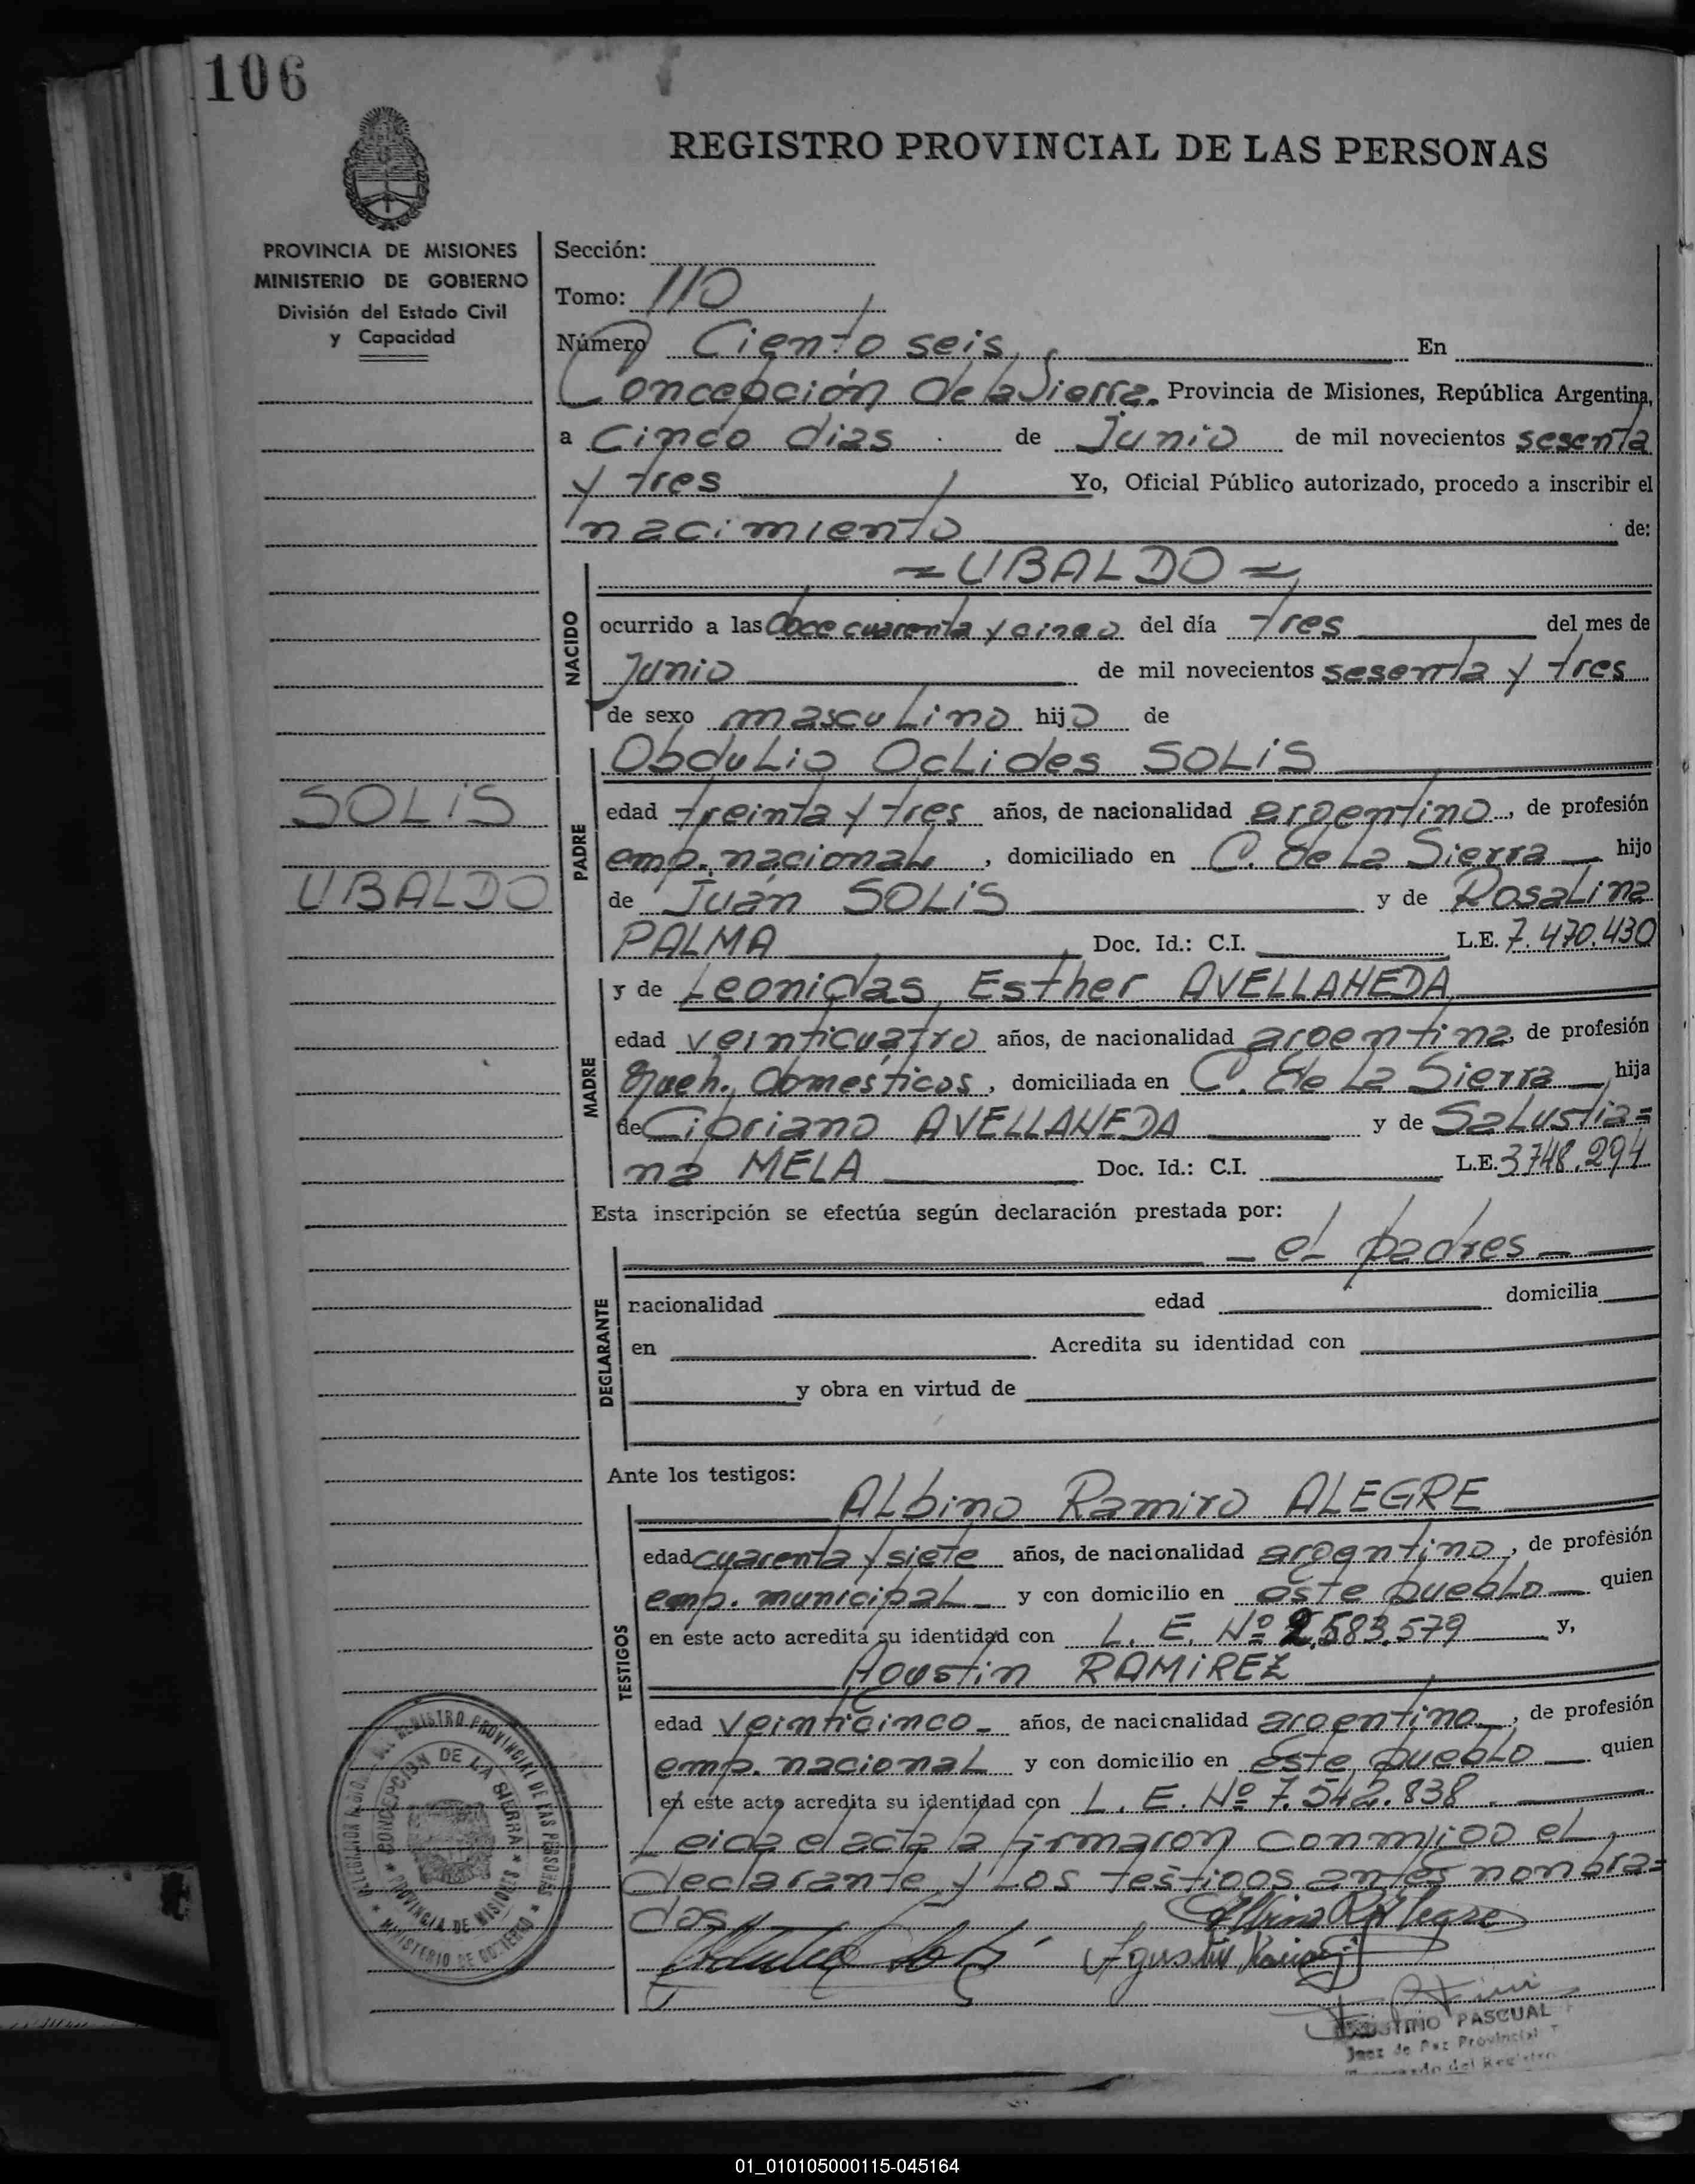 106
REGISTRO PROVINCIAL DE LAS PERSONAS
PROVINCIA DE MISIONES
MINISTERIO DE GOBIERNO
División del Estado Civil
y Capacidad
Sección:
Tomo: 110
Número Ciento seis En
Concepción de la Sierra. Provincia de Misiones, República Argentina,
a Cinco dias de Junio de mil novecientos sesenta
y tres Yo, Oficial Público autorizado, procedo a inscribir el
nacimiento de:
= UBALDO =
NACIDO
ocurrido a las doce cuarenta y cinco del día tres del mes de
Junio de mil novecientos sesenta y tres
de sexo masculino hijo de
Obdulio Oclides SOLIS
SOLIS
UBALDO
PADRE
edad treinta y tres años, de nacionalidad argentino, de profesión
emp. nacional, domiciliado en C. de La Sierra hijo
de Juan SOLIS y de Rosalina
PALMA Doc. Id.: C.I. L.E. 7.470.430
y de Leonidas Esther AVELLANEDA
MADRE
edad veinticuatro años, de nacionalidad argentina, de profesión
queh. domésticos, domiciliada en C. de La Sierra hija
de Cipriano AVELLANEDA y de Salustia=
na MELA Doc. Id.: C.I. L.E. 3748.294
Esta inscripción se efectúa según declaración prestada por:
- el padres -
DECLARANTE
nacionalidad edad domicilia
en Acredita su identidad con
y obra en virtud de
Ante los testigos:
Albino Ramiro ALEGRE
TESTIGOS
edad cuarenta y siete años, de nacionalidad argentino, de profesión
emp. municipal y con domicilio en este pueblo quien
en este acto acredita su identidad con L. E. Nº 2.583.579 y,
Agustin RAMIREZ
edad veinticinco años, de nacionalidad argentino, de profesión
emp. nacional y con domicilio en este pueblo quien
en este acto acredita su identidad con L. E. Nº 7.542.838.
Leida el acta la firmaron conmigo el
declarante y los testigos antes nombra=
dos
Albino R Alegre
Agustin Ramirez
PASCUAL
Juez de Paz Provincial
del Registro
REGISTRO PROVINCIAL DE LAS PERSONAS
CONCEPCION DE LA SIERRA
PROVINCIA DE MISIONES
MINISTERIO DE GOBIERNO
01_010105000115-045164